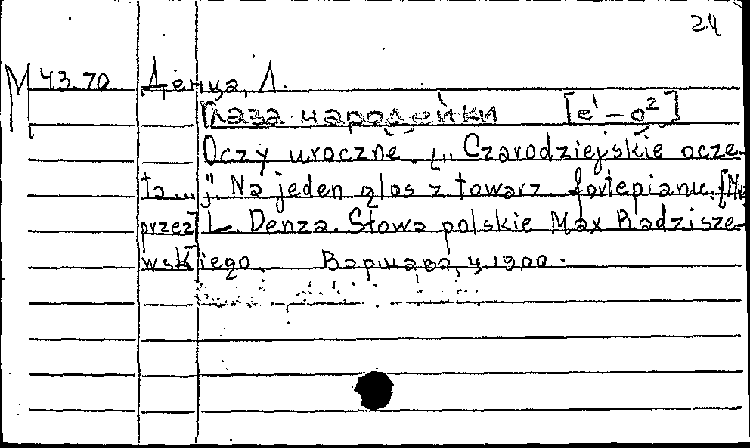 24
M 43.70 Денца, Л.
Глаза чародейки [e¹ – o²]
Oczy uroczne. („Czarodziejskie ocze-
ta..."). Na jeden głos z towarz. fortepianu. [Muz.
przez] L. Denza. Słowa polskie Max Radzisze-
wskiego. Варшава, ч. 1900.